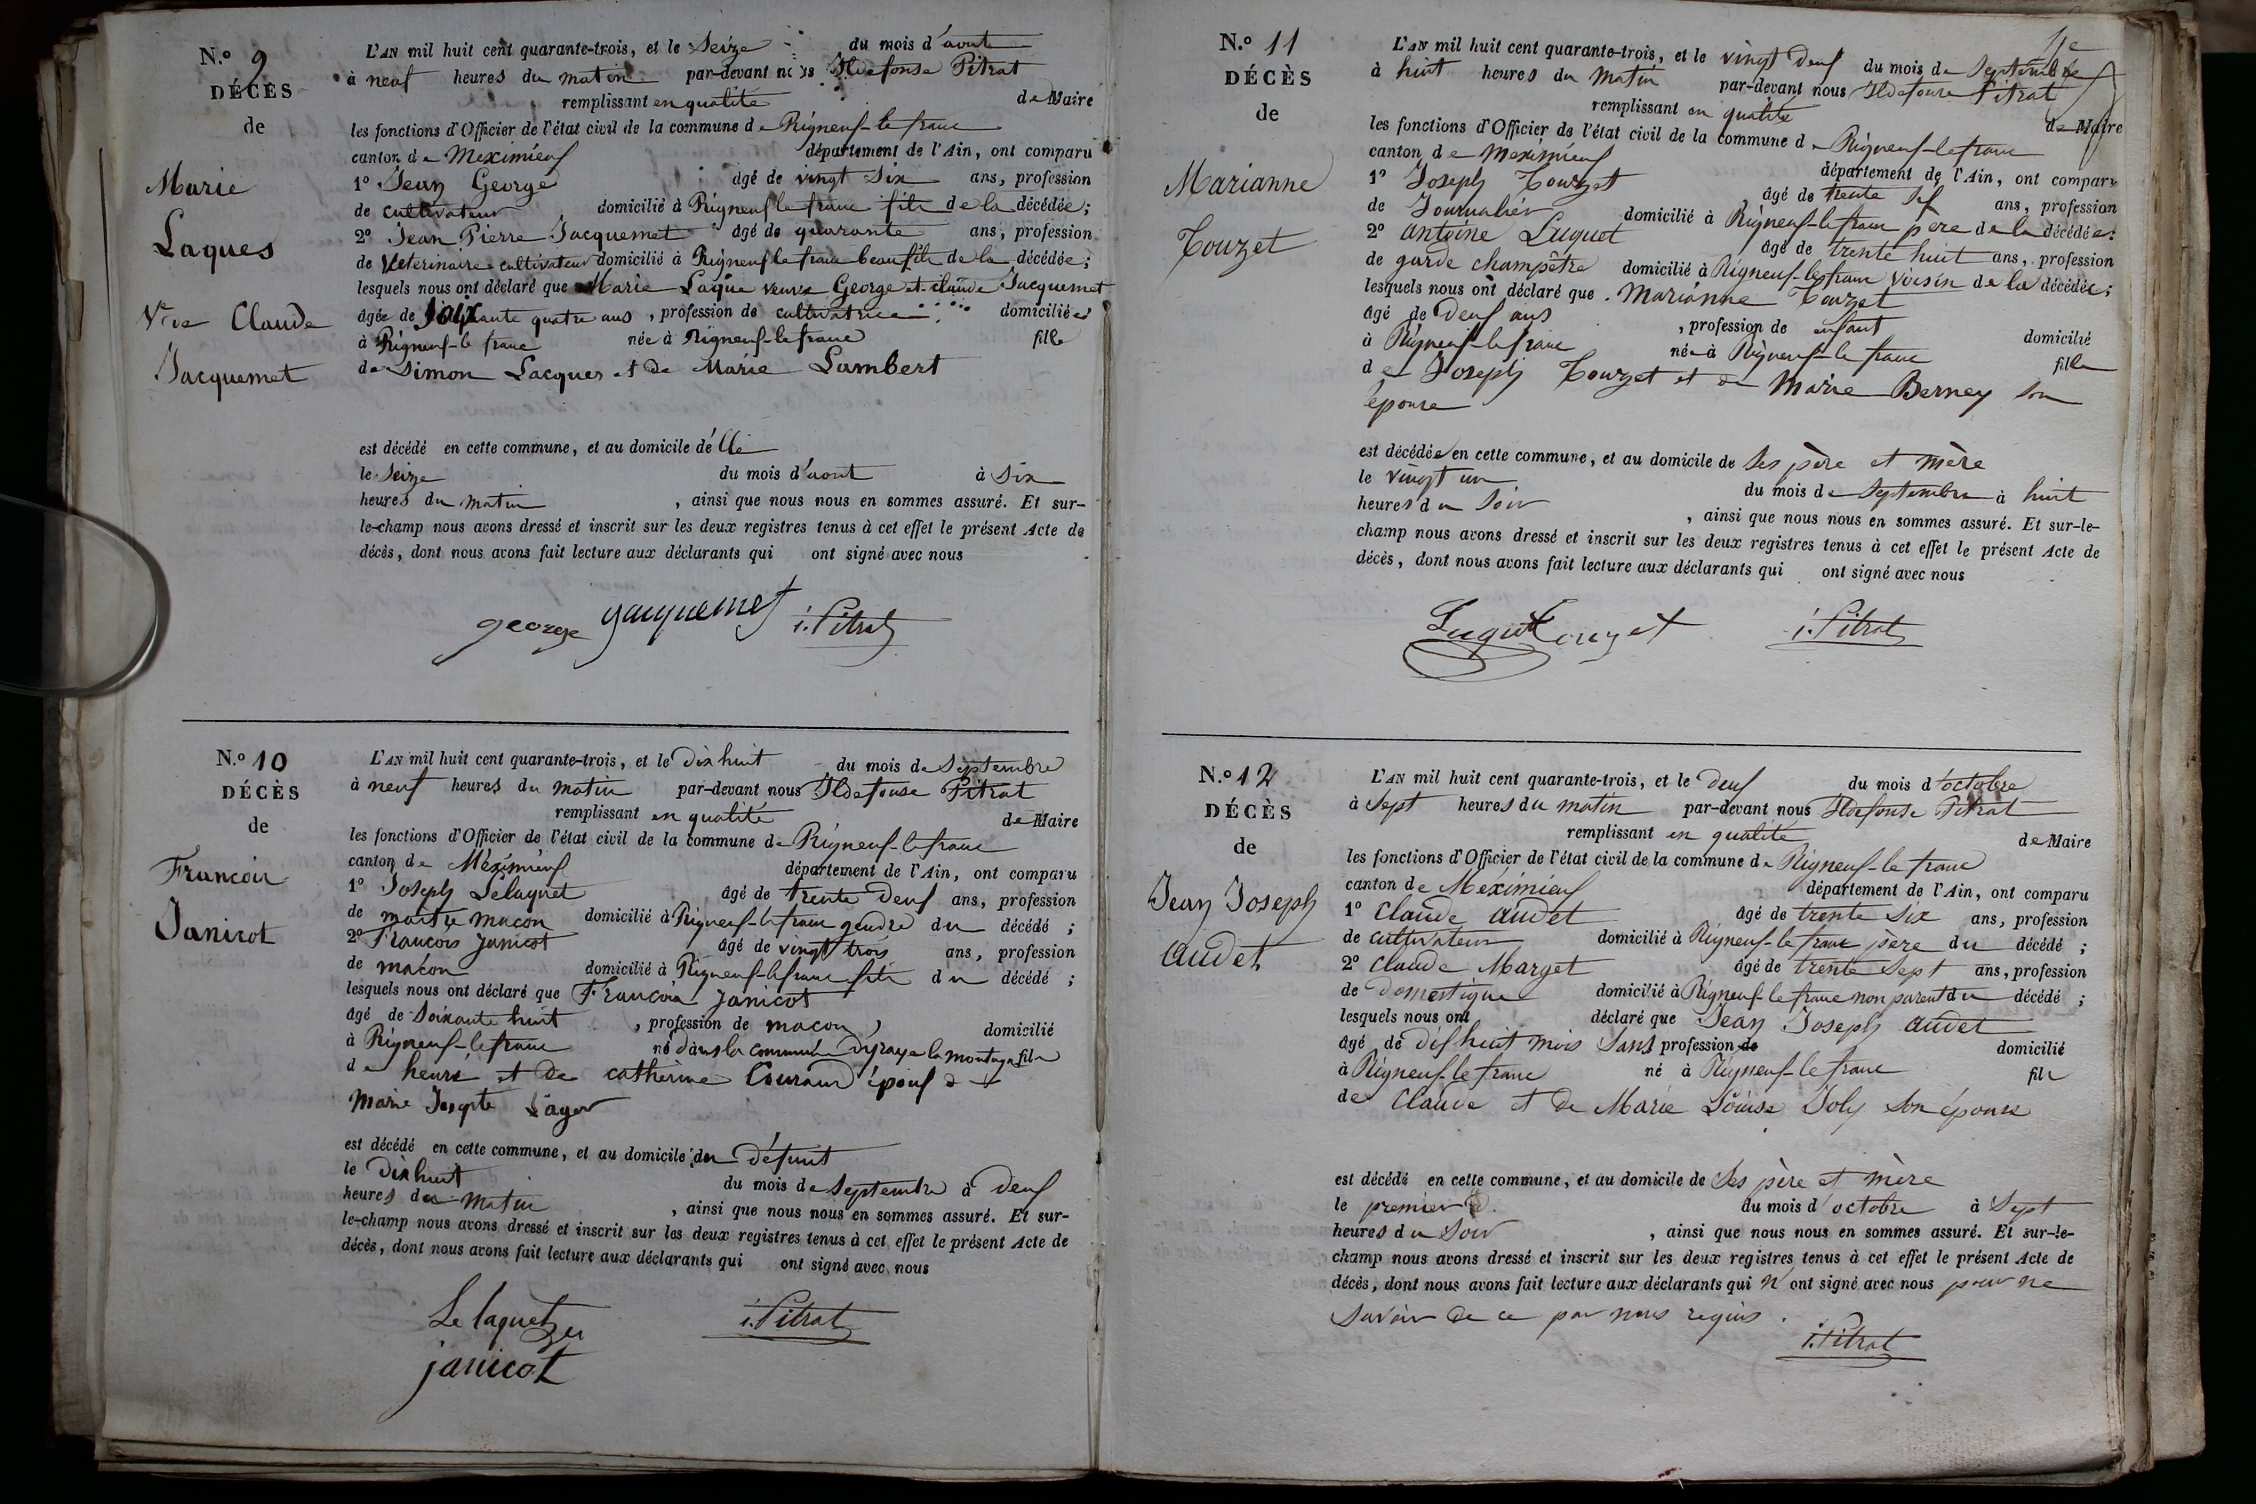 N.º 9
DÉCÈS
de
Marie
Laques
Vve Claude
Jacquemet
L'AN mil huit cent quarante-trois, et le Seize du mois d'août
à neuf heures du matin par-devant nous Ildefonse Pitrat
remplissant en qualité de Maire
les fonctions d'Officier de l'état civil de la commune de Rigneux-le franc
canton de Meximieux département de l'Ain, ont comparu
1º Jean George âgé de vingt Six ans, profession
de cultivateur domicilié à Rigneux le franc fils de la décédée;
2º Jean Pierre Jacquemet âgé de quarante ans, profession
de Veterinaire cultivateur domicilié à Rigneux le franc beaufils de la décédée;
lesquels nous ont déclaré que Marie Laque veuve George et claude Jacquemet
âgée de Soixante quatre ans, profession de cultivatrice domiciliée
à Rigneux-le franc née à Rigneux-le franc fille
de Simon Lacques et de Marie Lambert
est décédé en cette commune, et au domicile d'elle
le Seize du mois d'aout à Six
heures du matin, ainsi que nous nous en sommes assuré. Et sur-
le-champ nous avons dressé et inscrit sur les deux registres tenus à cet effet le présent Acte de
décès, dont nous avons fait lecture aux déclarants qui ont signé avec nous
george jacquemet i. Pitrat
N.º 10
DÉCÈS
de
Francois
Janicot
L'AN mil huit cent quarante-trois, et le Dix huit du mois de Septembre
à neuf heures du matin par-devant nous Ildefonse Pitrat
remplissant en qualité de Maire
les fonctions d'Officier de l'état civil de la commune de Rigneux-le franc
canton de Méximieux département de l'Ain, ont comparu
1º Joseph Lelaquet âgé de trente Deux ans, profession
de maitre macon domicilié à Rigneux-le franc gendre du décédé;
2º Francois Janicot âgé de vingt trois ans, profession
de macon domicilié à Rigneux-le franc fils du décédé;
lesquels nous ont déclaré que Francois Janicot
âgé de Soixante huit, profession de macon, domicilié
à Rigneux-le franc né dans la commune la montagne fils
de henri et de catherine Couraud époux de
Marie
est décédé en cette commune, et au domicile du Défunt
le Dix huit du mois de Septembre à Deux
heures du matin, ainsi que nous nous en sommes assuré. Et sur-
le-champ nous avons dressé et inscrit sur les deux registres tenus à cet effet le présent Acte de
décès, dont nous avons fait lecture aux déclarants qui ont signé avec nous
Le laquet i. Pitrat
janicot
N.º 11
DÉCÈS
de
Marianne
Touzet
L'AN mil huit cent quarante-trois, et le vingt Deux du mois de Septembre
à huit heures du Matin par-devant nous Ildefonse Pitrat
remplissant en qualité de Maire
les fonctions d'Officier de l'état civil de la commune de Rigneux-le franc
canton de Meximieux département de l'Ain, ont comparu
1º Joseph Touzet âgé de trente Six ans, profession
de Journalier domicilié à Rigneux-le franc père de la décédée;
2º Antoine Luquet âgé de trente huit ans, profession
de garde champêtre domicilié à Rigneux-le franc voisin de la décédée;
lesquels nous ont déclaré que Marianne Touzet
âgé de Deux ans, profession de enfant domicilié
à Rigneux-le franc née à Rigneux-le franc fille
de Joseph Touzet et de Marie Berney son
épouse
est décédée en cette commune, et au domicile de Ses père et mère
le vingt un du mois de Septembre à huit
heures du Soir, ainsi que nous nous en sommes assuré. Et sur-le-
champ nous avons dressé et inscrit sur les deux registres tenus à cet effet le présent Acte de
décès, dont nous avons fait lecture aux déclarants qui ont signé avec nous
Luquet Touzet i. Pitrat
N.º 12
DÉCÈS
de
Jean Joseph
Audet
L'AN mil huit cent quarante-trois, et le Deux du mois d'octobre
à Sept heures du matin par-devant nous Ildefonse Pitrat
remplissant en qualité de Maire
les fonctions d'Officier de l'état civil de la commune de Rigneux-le franc
canton de Méximieux département de l'Ain, ont comparu
1º Claude Audet âgé de trente Six ans, profession
de cultivateur domicilié à Rigneux-le franc père du décédé;
2º Claude Marget âgé de trente Sept ans, profession
de Domestique domicilié à Rigneux-le franc non parent du décédé;
lesquels nous ont déclaré que Jean Joseph Audet
âgé de dix huit mois Sans profession de domicilié
à Rigneux-le franc né à Rigneux-le franc fils
de Claude et de Marie Louise Joly Son épouse
est décédé en cette commune, et au domicile de Ses père et mère
le premier du mois d'octobre à Sept
heures du Soir, ainsi que nous nous en sommes assuré. Et sur-le-
champ nous avons dressé et inscrit sur les deux registres tenus à cet effet le présent Acte de
décès, dont nous avons fait lecture aux déclarants qui n'ont signé avec nous pour ne
Savoir de ce par nous requis.
i. Pitrat